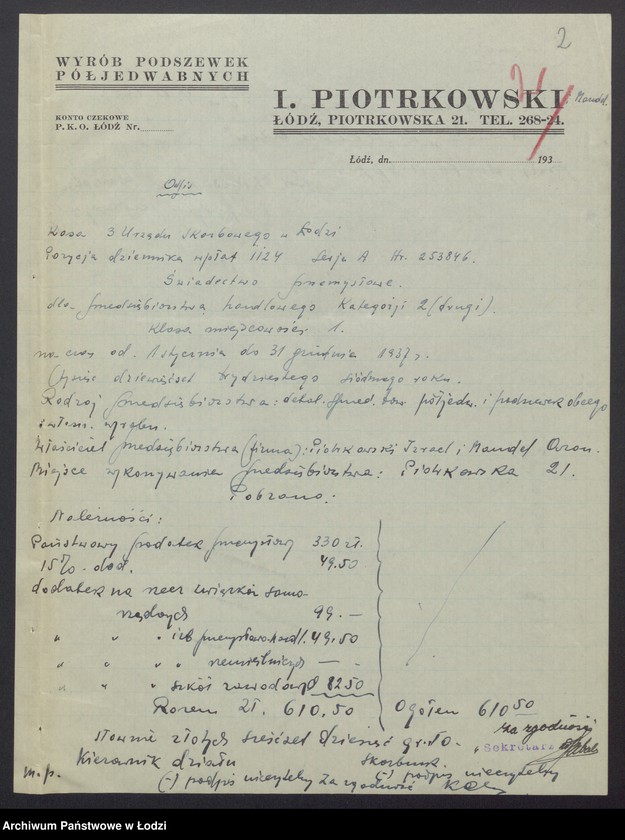 2
WYRÓB PODSZEWEK
PÓŁJEDWABNYCH
KONTO CZEKOWE
P. K. O. ŁÓDŹ Nr.
I. PIOTRKOWSKI i Mandel
ŁÓDŹ, PIOTRKOWSKA 21. TEL. 268-24.
2/
Łódź, dn. 193
Odpis
Kasa 3 Urzędu Skarbowego w Łodzi
Pozycja dziennika wpłat 1124 Serja A Nr. 253846.
Świadectwo przemysłowe.
dla przedsiębiorstwa handlowego Kategorji 2 (drugi).
Klasa miejscowości 1.
na czas od 1 stycznia do 31 grudnia 1937 r.
(tysiąc dziewięćset trzydziestego siódmego roku.
Rodzaj przedsiębiorstwa: detal. sprzed. tow. półjedw. i podszewek obcego
i własn. wyrobu.
Właściciel przedsiębiorstwa (firma): Piotrkowski Izrael i Mandel Aron.
Miejsce wykonywania przedsiębiorstwa: Piotrkowska 21.
Pobrano:
Należności:
Państwowy podatek przemysłowy 330 zł.
15% dod. 49.50
dodatek na rzecz związków samo
rządnych 99.—
" " " izb przemysłowo handl. 49.50
" " " " rzemieślniczych — -
" " " szkół zawodowych 82.50
Razem zł. 610,50
Ogółem 610 50
Słownie złotych sześćset dziesięć gr. 50.
za zgodność
Sekretarz
Kierownik działu
Skarbnik.
m.p.
(-) podpis nieczytelny
(-) podpis nieczytelny
Za zgodność
Archiwum Państwowe w Łodzi